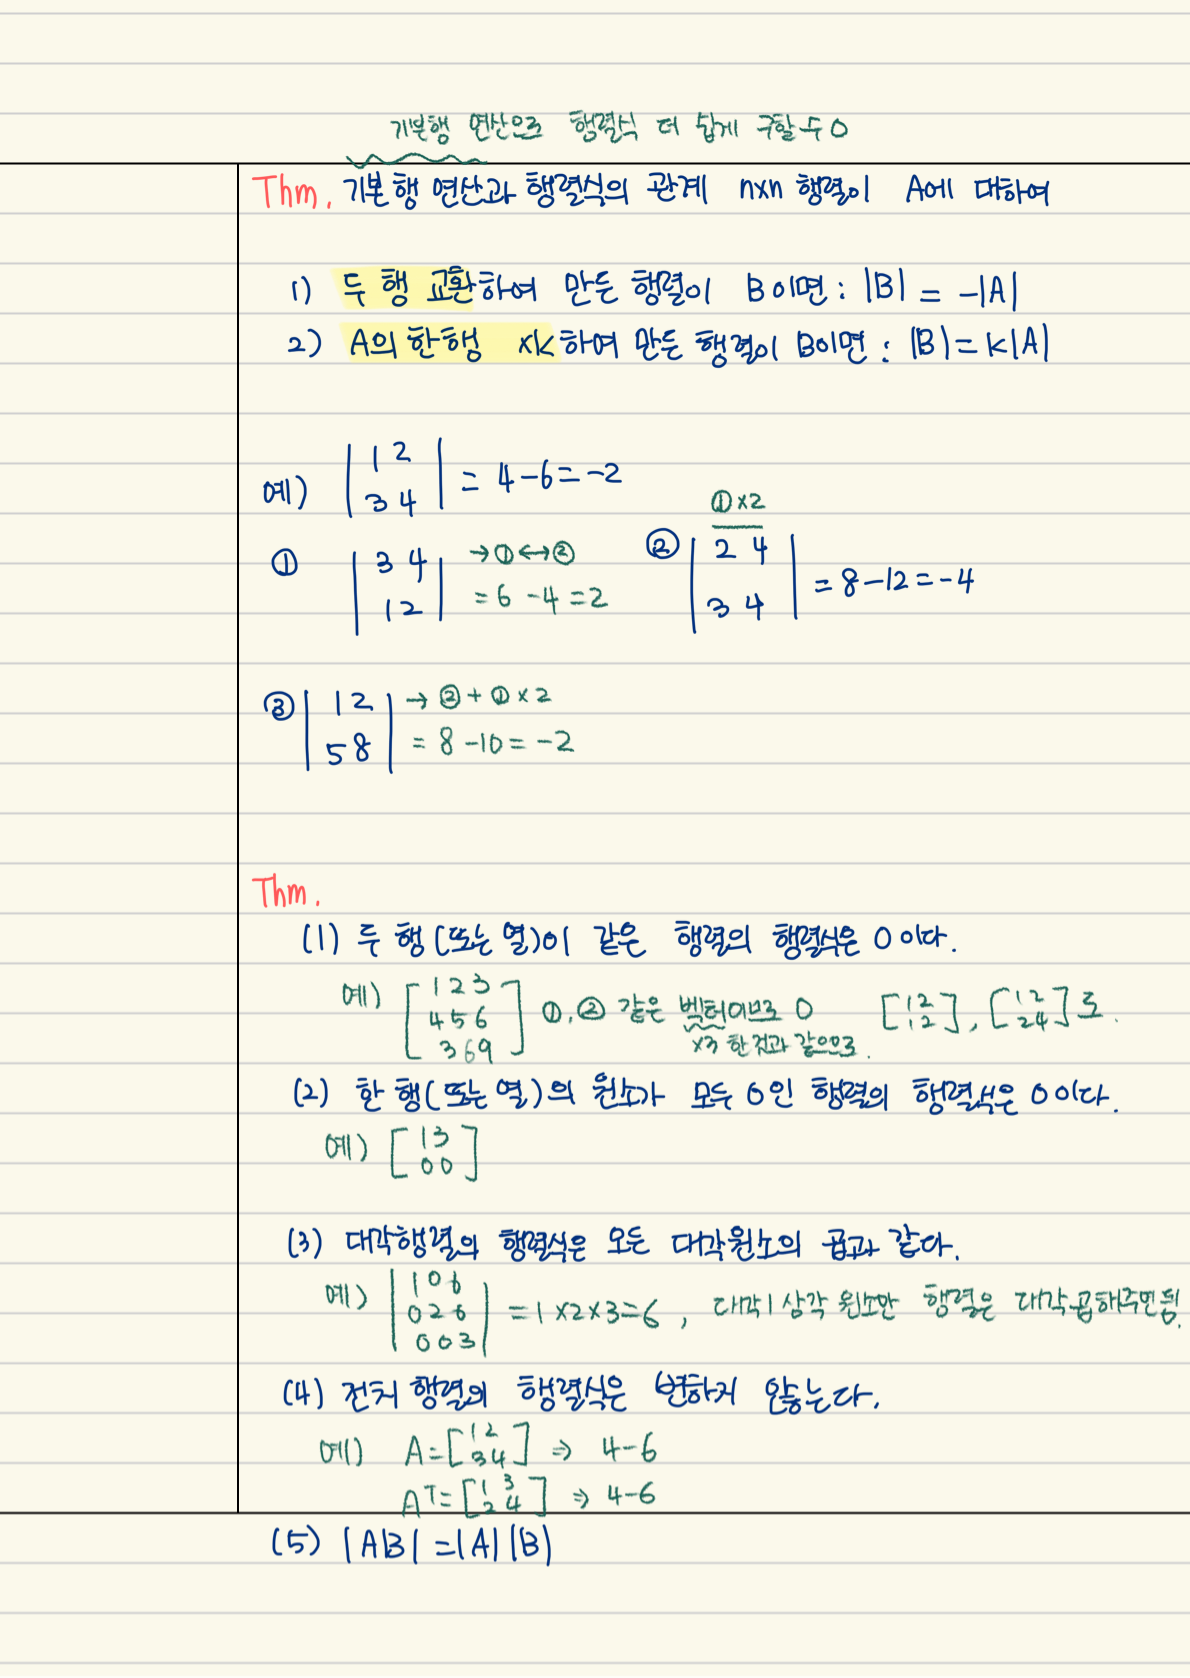 기본행 연산으로 행렬식 더 쉽게 구할 수 O
Thm. 기본행 연산과 행렬식의 관계 n×n 행렬이 A에 대하여
1) 두 행 교환하여 만든 행렬이 B이면 : |B| = -|A|
2) A의 한행 ×k하여 만든 행렬이 B이면 : |B| = k|A|
예) |1 2
3 4| = 4-6 = -2
① |3 4
1 2| → ①↔②
= 6-4 = 2
①×2
② |2 4
3 4| = 8-12 = -4
③ |1 2
5 8| → ② + ① × 2
= 8-10 = -2
Thm.
(1) 두 행(또는 열)이 같은 행렬의 행렬식은 0이다.
예) [1 2 3
4 5 6
3 6 9] ①, ③ 같은 벡터이므로 0 [1 2
1 2], [1 2
2 4]도.
×3 한것과 같으므로.
(2) 한 행(또는 열)의 원소가 모두 0인 행렬의 행렬식은 0이다.
예) [1 3
0 0]
(3) 대각행렬의 행렬식은 모든 대각원소의 곱과 같다.
예) |1 0 6
0 2 6
0 0 3| = 1×2×3=6, 대각 | 삼각 원소만 행렬은 대각곱해주면됨.
(4) 전치 행렬의 행렬식은 변하지 않는다.
예) A=[1 2
3 4] ⇒ 4-6
Aᵀ=[1 3
2 4] ⇒ 4-6
(5) |AB| = |A||B|